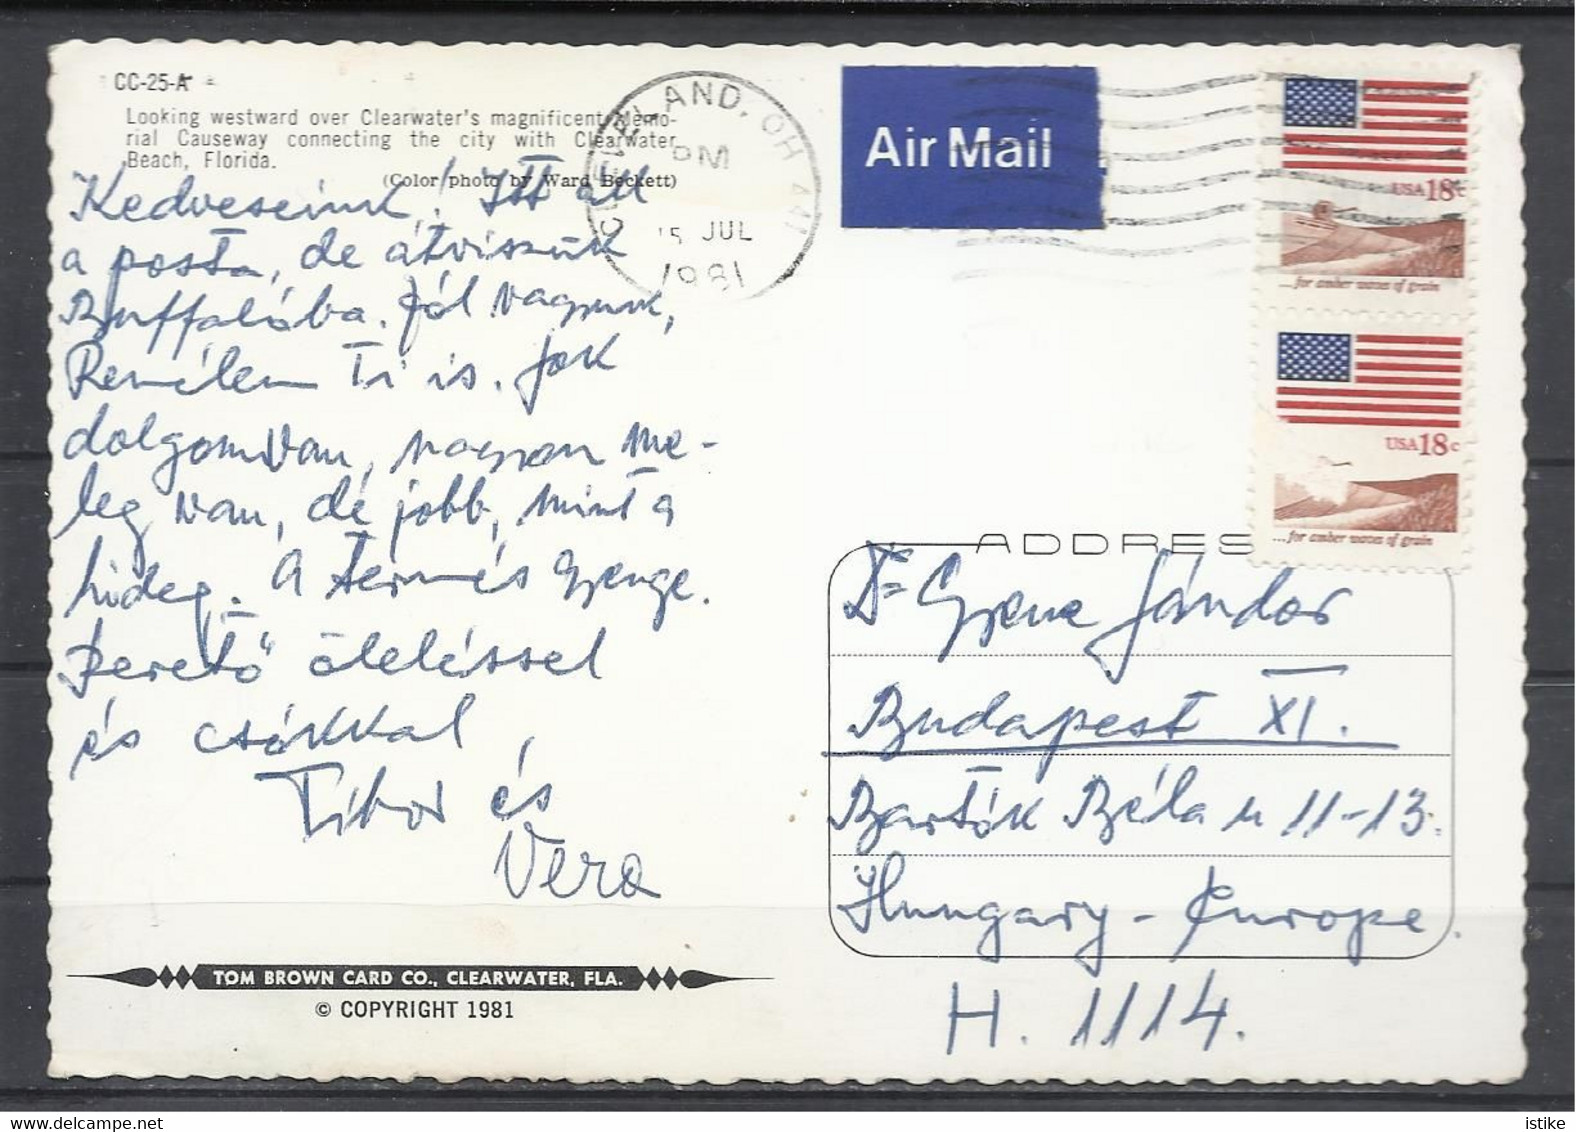 CC-25-A
Looking westward over Clearwater's magnificent Memo-
rial Causeway connecting the city with Clearwater
Beach, Florida.
(Color photo by Ward Beckett)
Kedveseink! Itt áll
a posta, de átvisszük
Buffalóba. Jól vagyunk,
Remélem Ti is. Sok
dolgom van, nagyon me-
leg van, de jobb, mint a
hideg. A termés gyenge.
Szerető öleléssel
és csókkal,
Tibor és
Vera
TOM BROWN CARD CO., CLEARWATER, FLA.
© COPYRIGHT 1981
CLEVELAND, OH 441
PM
15 JUL
1981
Air Mail
USA 18c
...for amber waves of grain
USA 18c
...for amber waves of grain
ADDRES
Dr Gyene Sándor
Budapest XI.
Bartók Béla u 11-13.
Hungary - Europe.
H. 1114.
istike